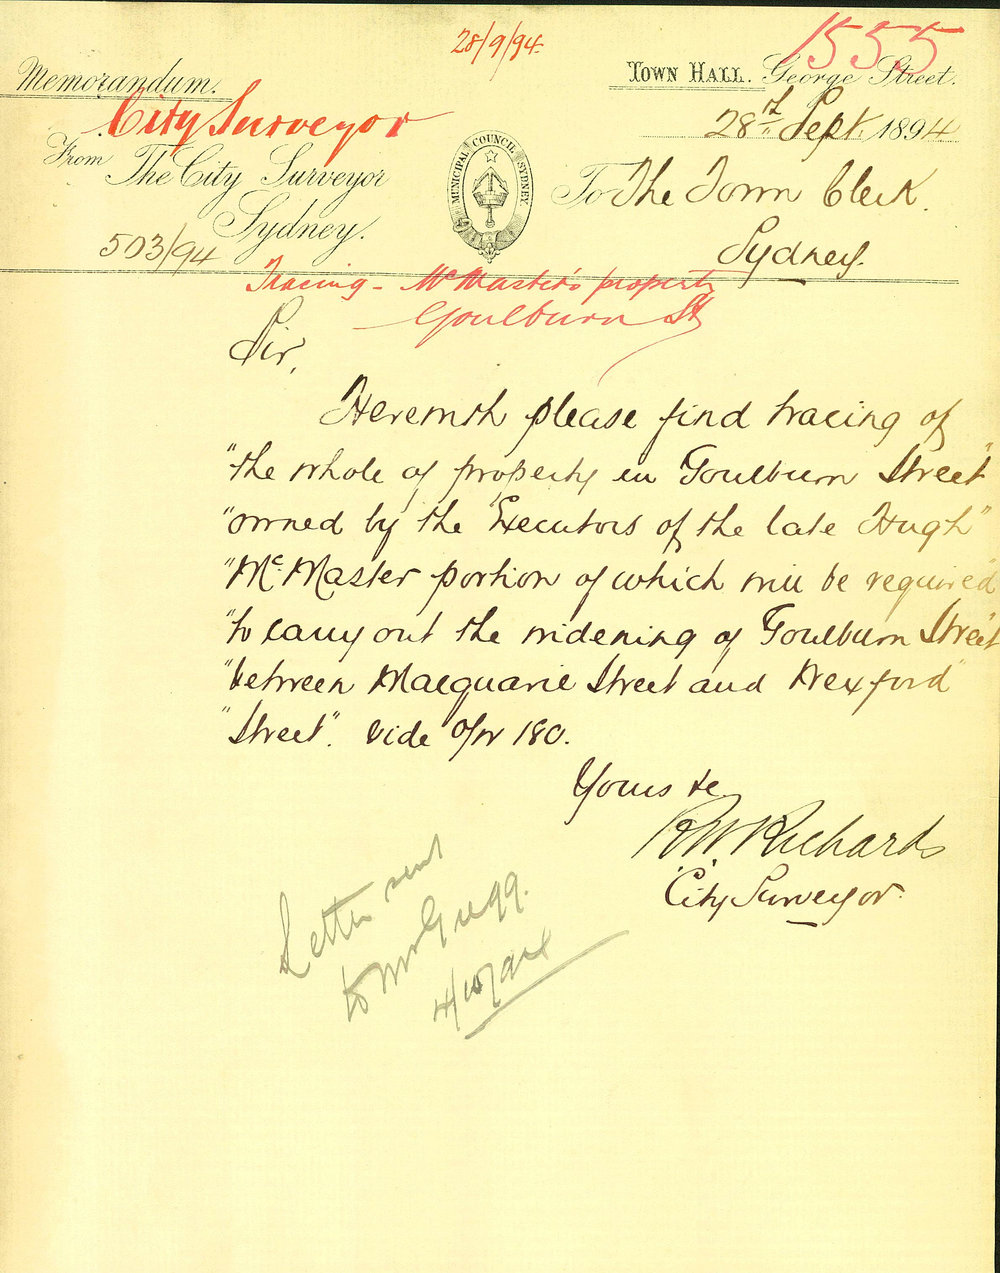 28/9/94.
1555
Memorandum.
Town Hall. George Street.
City Surveyor
28th Sept. 1894
From The City Surveyor
Sydney.
MUNICIPAL COUNCIL SYDNEY
To The Town Clerk.
Sydney.
503/94
Tracing - McMaster's property
Goulburn St
Sir,
Herewith please find tracing of
"the whole of property in Goulburn Street"
"owned by the Executors of the late Hugh"
"McMaster portion of which will be required"
"to carry out the widening of Goulburn Street"
"between Macquarie Street and Wexford"
"Street". Vide o/w 180.
Yours &c
R.W. Richards
City Surveyor.
Letter sent
to Mr Gregg.